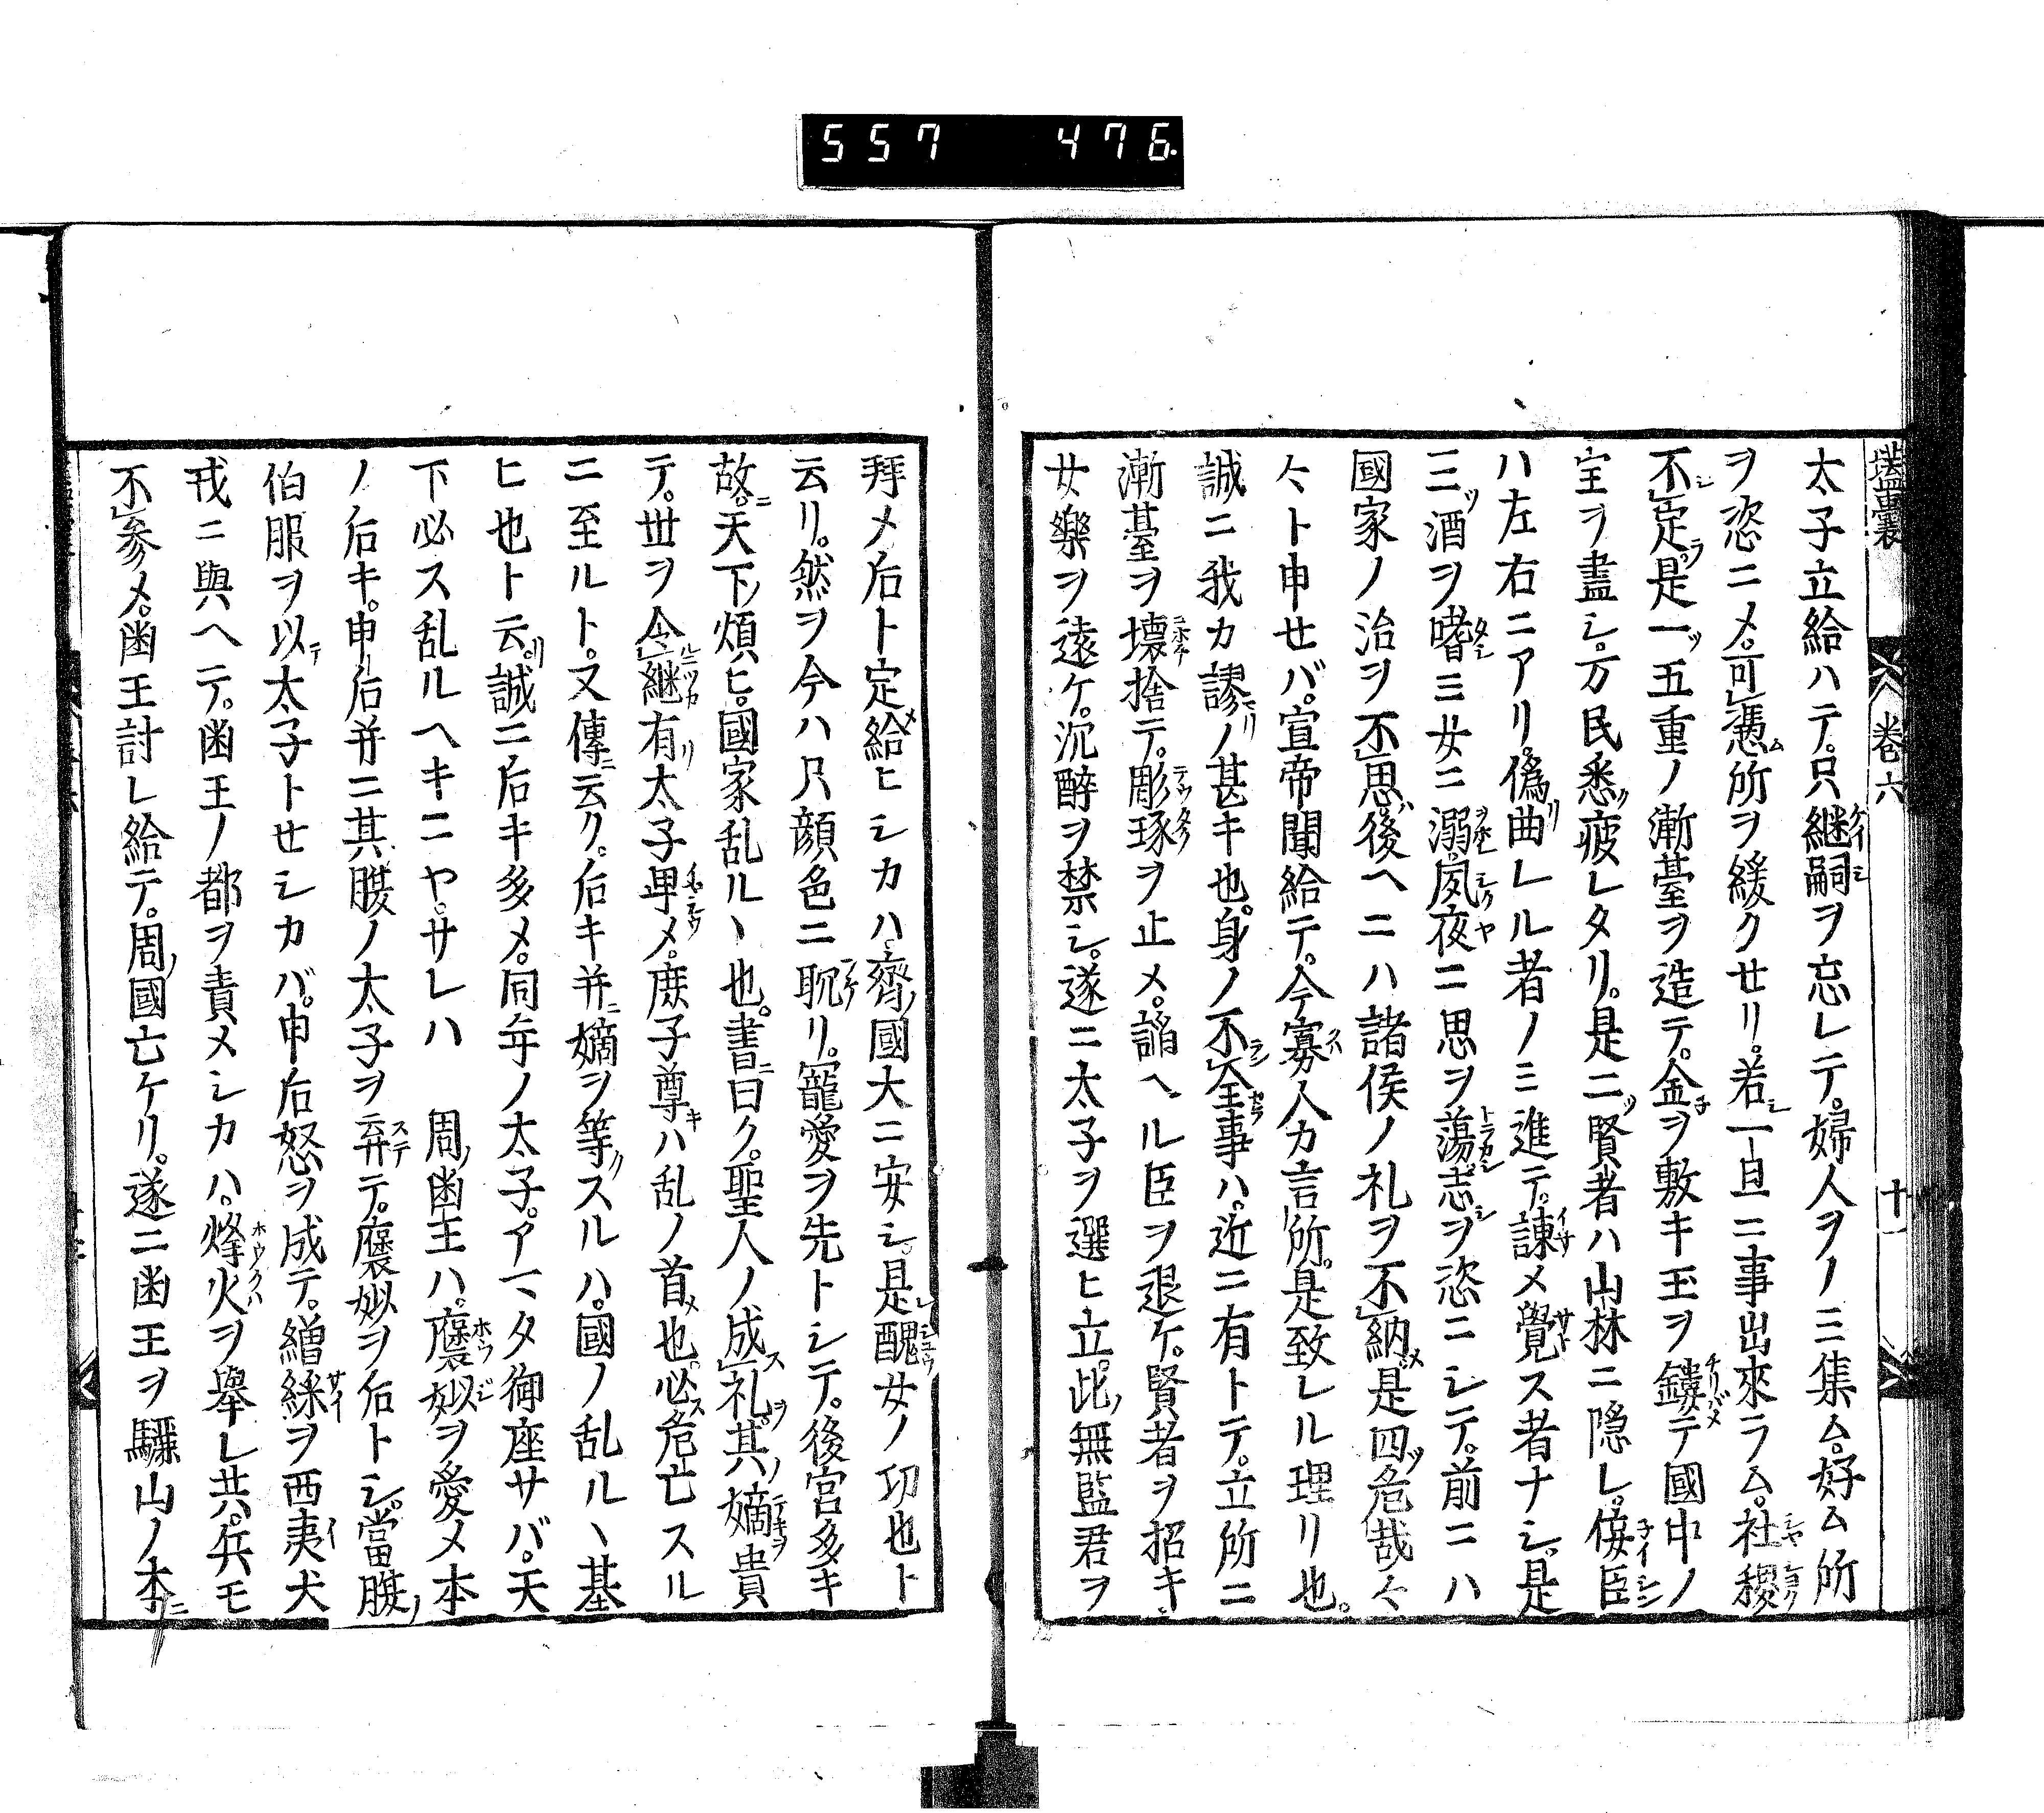 557 476
壒囊 卷六 十一
太子立給ハテ。只継嗣ヲ忘レテ。婦人ヲノミ集ム。好ム所
ヲ恣ニメ。可憑所ヲ緩クせリ。若一旦ニ事出來ラム。社稷
不定。是一五重ノ漸臺ヲ造テ。金ヲ敷キ玉ヲ鏤テ國中ノ
宝ヲ盡シ。万民悉疲レタリ。是二賢者ハ山林ニ隠レ。佞臣
ハ左右ニアリ。偽曲レル者ノミ進テ。諌メ覺ス者ナシ。是
三酒ヲ嗜ミ女ニ溺。夙夜ニ思ヲ蕩志ヲ恣ニシテ。前ニハ
國家ノ治ヲ不思後ヘニハ諸侯ノ礼ヲ不納。是四危哉々
々ト申せバ。宣帝聞給テ。今寡人カ言所。是致レル理リ也。
誠ニ我カ謬ノ甚キ也。身ノ不全事ハ。近ニ有トテ。立所ニ
漸臺ヲ壊捨テ。彫琢ヲ止メ。諂ヘル臣ヲ退ケ。賢者ヲ招キ
女樂ヲ遠ケ。沉醉ヲ禁シ。遂ニ太子ヲ選ヒ立。此無監君ヲ
拜メ后ト定給ヒシカハ。齊國大ニ安シ。是醜女ノ功也ト
云リ。然ヲ今ハ只顔色ニ耽リ。寵愛ヲ先トシテ。後宮多キ
故。天下煩ヒ。國家乱ルヽ也。書曰ク。聖人ノ成礼。其嫡貴
テ。丗ヲ令継有太子卑メ。庶子尊ハ乱ノ首也。必危亡スル
ニ至ルト。又傳云ク。后キ并嫡ヲ等スルハ。國ノ乱ルヽ基
ヒ也ト云。誠ニ后キ多メ。同年ノ太子。アマタ御座サバ。天
下必ス乱ルヘキニヤ。サレハ 周幽王ハ。褒姒ヲ愛メ本
ノ后キ。申后并ニ其腹ノ太子ヲ弃テ。褒姒ヲ后トシ。當腹
伯服ヲ以太子トせシカバ。申后怒ヲ成テ。繒綵ヲ西夷犬
戎ニ與ヘテ。幽王ノ都ヲ責メシカハ。烽火ヲ擧レ共。兵モ
不参メ。幽王討レ給テ。周國亡ケリ。遂ニ幽王ヲ驪山ノ本